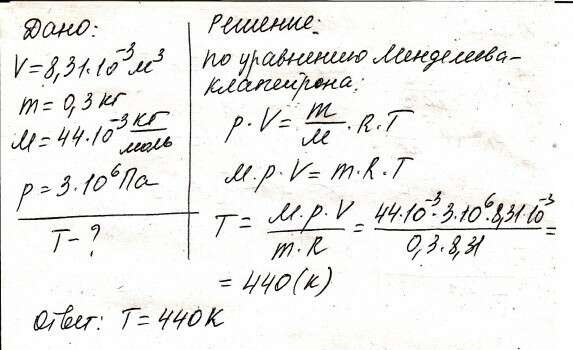 Дано:
V=8,31·10⁻³м³
m=0,3кг
M=44·10⁻³ кг/моль
p=3·10⁶Па
T-?
Решение:
по уравнению Менделеева-
клапейрона:
p·V=m/M·R·T
M·p·V=m·R·T
T=M·p·V/m·R=44·10⁻³·3·10⁶·8,31·10⁻³/0,3·8,31=
=440(К)
Ответ: T=440К